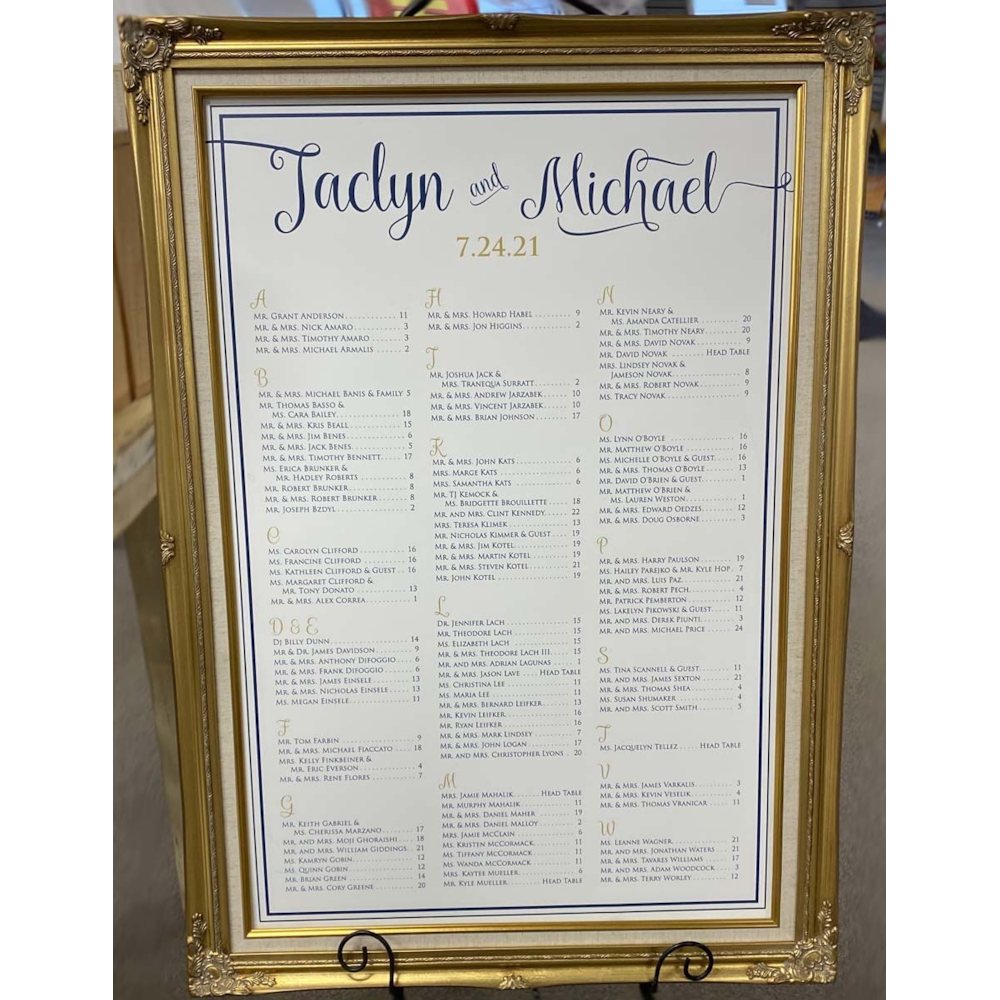 Jaclyn and Michael
7.24.21
A
Mr. Grant Anderson............ 11
Mr. & Mrs. Nick Amaro............ 3
Mr. & Mrs. Timothy Amaro........ 3
Mr. & Mrs. Michael Armalis....... 2
B
Mr. & Mrs. Michael Banis & Family 5
Mr. Thomas Basso &
Ms. Cara Bailey............... 18
Mr. & Mrs. Kris Beall............ 15
Mr. & Mrs. Jim Benes............. 6
Mr. & Mrs. Jack Benes............ 5
Mr. & Mrs. Timothy Bennett..... 17
Ms. Erica Brunker &
Mr. Hadley Roberts............ 8
Mr. Robert Brunker............... 8
Mr. & Mrs. Robert Brunker....... 8
Mr. Joseph Bzdyl................. 2
C
Ms. Carolyn Clifford............ 16
Ms. Francine Clifford........... 16
Ms. Kathleen Clifford & Guest.. 16
Ms. Margaret Clifford &
Mr. Tony Donato............... 13
Mr. & Mrs. Alex Correa........... 1
D & E
DJ Billy Dunn.................... 14
Mr & Dr. James Davidson......... 9
Mr. & Mrs. Anthony DiFoggio.... 6
Mr. & Mrs. Frank DiFoggio....... 6
Mr. & Mrs. James Einsele........ 13
Mr. & Mrs. Nicholas Einsele..... 13
Ms. Megan Einsele................ 11
F
Mr. Tom Farbin................... 9
Mr. & Mrs. Michael Fiaccato.... 18
Mrs. Kelly Finkbeiner &
Mr. Eric Everson.............. 4
Mr. & Mrs. Rene Flores........... 7
G
Mr. Keith Gabriel &
Ms. Cherissa Marzano........ 17
Mr. and Mrs. Moji Ghoraishi.... 18
Mr. and Mrs. William Giddings.. 21
Ms. Kamryn Gobin................. 12
Ms. Quinn Gobin.................. 12
Mr. Brian Green.................. 14
Mr. & Mrs. Cory Greene.......... 20
H
Mr. & Mrs. Howard Habel......... 9
Mr. & Mrs. Jon Higgins........... 2
J
Mr. Joshua Jack &
Mrs. Tranequa Surratt........ 2
Mr. & Mrs. Andrew Jarzabek..... 10
Mr. & Mrs. Vincent Jarzabek.... 10
Mr. & Mrs. Brian Johnson........ 17
K
Mr. & Mrs. John Kats............. 6
Mrs. Marge Kats.................. 6
Mrs. Samantha Kats............... 6
Mr. TJ Kemock &
Ms. Bridgette Brouillette.... 18
Mr. and Mrs. Clint Kennedy..... 22
Mrs. Teresa Klimek............... 13
Mr. Nicholas Kimmer & Guest.... 19
Mr. & Mrs. Jim Kotel............. 19
Mr. & Mrs. Martin Kotel......... 19
Mr. & Mrs. Steven Kotel......... 21
Mr. John Kotel................... 19
L
Dr. Jennifer Lach................ 15
Mr. Theodore Lach................ 15
Ms. Elizabeth Lach............... 15
Mr. & Mrs. Theodore Lach III.... 15
Mr. and Mrs. Adrian Lagunas.... 1
Mr. & Mrs. Jason Lave.... Head Table
Ms. Christina Lee................ 11
Ms. Maria Lee.................... 11
Mr. & Mrs. Bernard Leifker..... 13
Mr. Kevin Leifker................ 16
Mr. Ryan Leifker................. 16
Mr. & Mrs. Mark Lindsey......... 7
Mr. & Mrs. John Logan........... 17
Mr. and Mrs. Christopher Lyons. 20
M
Mrs. Jamie Mahalik...... Head Table
Mr. Murphy Mahalik............... 11
Mr. & Mrs. Daniel Maher......... 19
Mr. & Mrs. Daniel Malloy........ 2
Mrs. Jamie McClain............... 6
Ms. Kristen McCormack........... 11
Ms. Tiffany McCormack........... 11
Ms. Wanda McCormack............. 11
Mrs. Kaytee Mueller.............. 6
Mr. Kyle Mueller........ Head Table
N
Mr. Kevin Neary &
Ms. Amanda Catellier......... 20
Mr. & Mrs. Timothy Neary........ 20
Mr. & Mrs. David Novak........... 9
Mr. David Novak........ Head Table
Mrs. Lindsey Novak &
Jameson Novak................. 8
Mr. & Mrs. Robert Novak......... 9
Ms. Tracy Novak.................. 9
O
Ms. Lynn O'Boyle................. 16
Mr. Matthew O'Boyle.............. 16
Ms. Michelle O'Boyle & Guest.... 16
Mr. & Mrs. Thomas O'Boyle....... 13
Mr. David O'Brien & Guest....... 1
Mr. Matthew O'Brien &
Ms. Lauren Weston............. 1
Mr. & Mrs. Edward Oedzes........ 12
Mr. & Mrs. Doug Osborne......... 3
P
Mr. & Mrs. Harry Paulson........ 19
Ms. Hailey Parejko & Mr. Kyle Hop. 7
Mr. and Mrs. Luis Paz............ 21
Mr. & Mrs. Robert Pech........... 4
Mr. Patrick Pemberton............ 12
Ms. Lakelyn Pikowski & Guest.... 11
Mr. and Mrs. Derek Piunti....... 3
Mr. and Mrs. Michael Price...... 24
S
Ms. Tina Scannell & Guest....... 11
Mr. and Mrs. James Sexton....... 21
Mr. & Mrs. Thomas Shea........... 4
Ms. Susan Shumaker............... 4
Mr. and Mrs. Scott Smith........ 5
T
Ms. Jacquelyn Tellez..... Head Table
V
Mr. & Mrs. James Varkalis....... 3
Mr. & Mrs. Kevin Veselik........ 4
Mr. & Mrs. Thomas Vranicar..... 11
W
Ms. Leanne Wagner................ 21
Mr. and Mrs. Jonathan Waters... 21
Mr. & Mrs. Tavares Williams.... 17
Mr. and Mrs. Adam Woodcock..... 3
Mr. & Mrs. Terry Worley......... 12